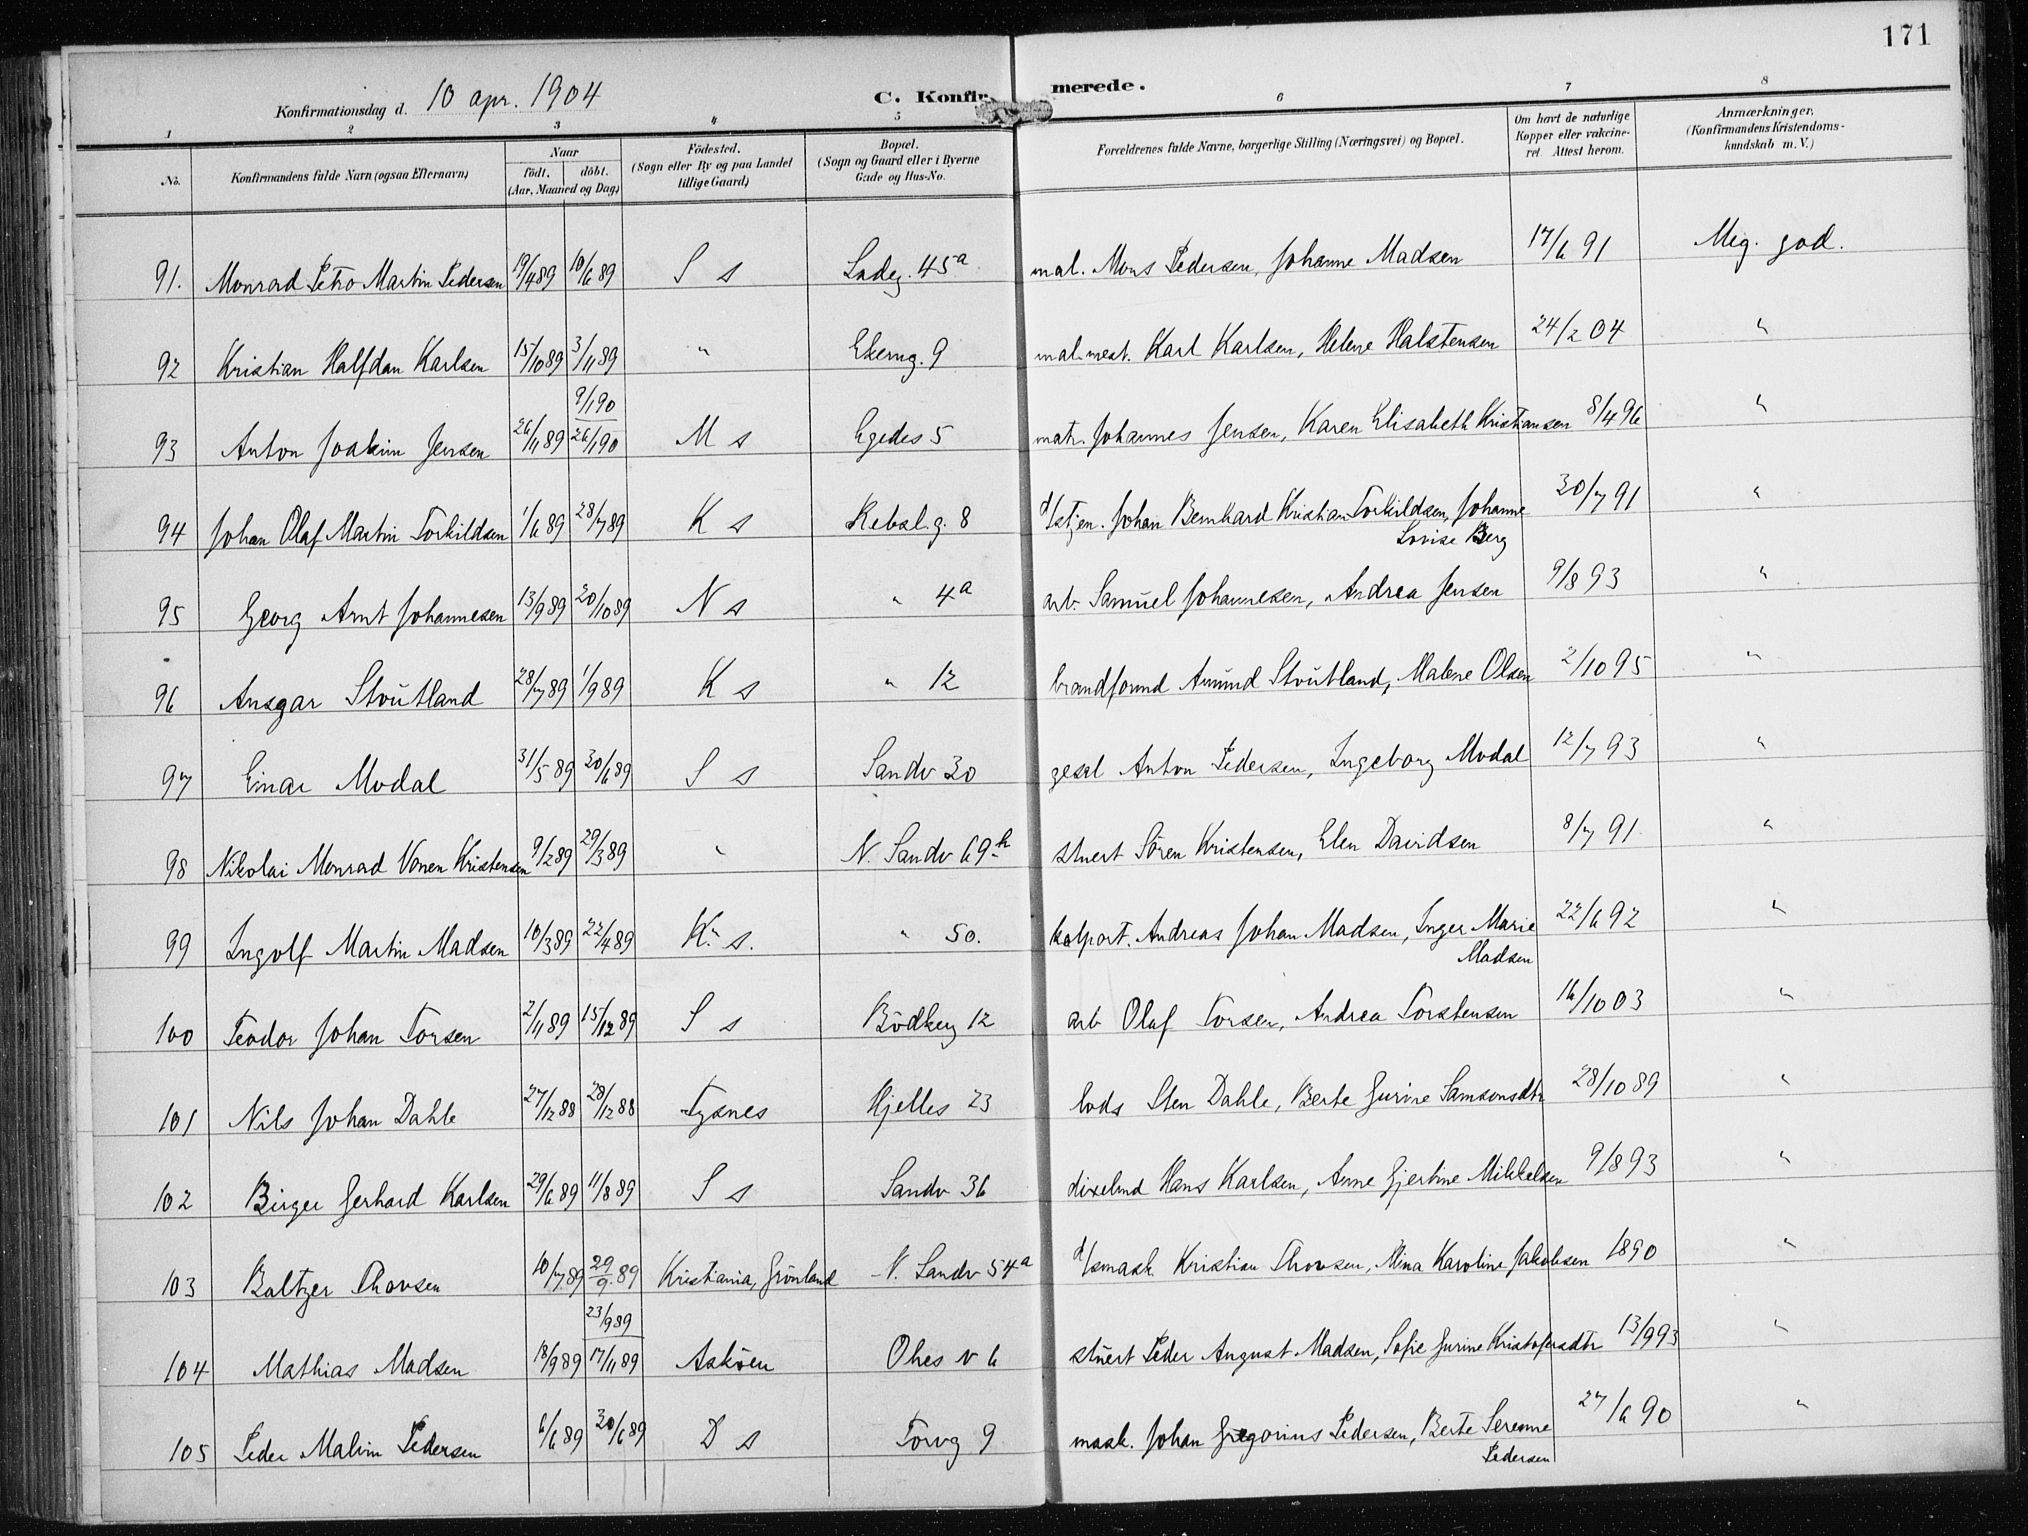 171
Konfirmationsdag d. 10 apr. 1904 C. Konfir- merede.
1 2 3 4 5 6 7 8
No. Konfirmandens fulde Navn (ogsaa Efternavn) Naar födt. döbt. (Aar, Maaned og Dag) Födested. (Sogn eller By og paa Landet tillige Gaard) Bopæl. (Sogn og Gaard eller i Byerne Gade og Hus-No. Forældrenes fulde Navne, borgerlige Stilling (Næringsvei) og Bopæl. Om havt de naturlige Kopper eller vakcineret. Attest herom. Anmærkninger. (Konfirmandens Kristendomskundskab m. V.)
91. Monrad Petro Martin Pedersen 19/4 89 10/6 89 S s Ladeg. 45a mal. Mons Pedersen, Johanne Madsen 17/6 91 Meg. god.
92 Kristian Halfdan Karlsen 15/10 89 3/11 89 " Ekerng. 9 mal.mest. Karl Karlsen, Helene Halstensen 24/2 04 "
9/1 90
93 Anton Joakim Jensen 26/11 89 26/1 90 M s Egedes 5 matr. Johannes Jensen, Karen Elisabeth Kristiansen 8/4 96 "
94 Johan Olaf Martin Torkildsen 1/6 89 28/7 89 K s Rebsl.g. 8 d/stjen. Johan Bernhard Kristian Torkildsen, Johanne 30/7 91 "
Lovise Berg
95 Georg Arnt Johannesen 13/9 89 20/10 89 N s " 4a arb. Samuel Johannesen, Andrea Jensen 9/8 93 "
96 Ansgar Stoutland 28/7 89 1/9 89 K s " 12 brandformd Amund Stoutland, Malene Olsen 2/10 95 "
97 Einar Modal 31/5 89 30/6 89 S s Sandv 30 gesel Anton Pedersen, Ingeborg Modal 12/7 93 "
98 Nikolai Monrad Vonen Kristensen 9/2 89 29/3 89 " N. Sandv 69 stuert Sören Kristensen, Elen Davidsen 8/7 91 "
99 Ingolf Martin Madsen 10/3 89 22/4 89 K. s. " 50. kolport. Andreas Johan Madsen, Inger Marie 22/6 92 "
Madsen
100 Teodor Johan Torsen 2/11 89 15/12 89 S s Bödkerg 12 arb Olaf Torsen, Andrea Torstensen 16/10 03 "
101 Nils Johan Dahle 27/12 88 28/12 88 Tysnes Hjelles 23 lods Sten Dahle, Berte Gurine Samsonsdtr 28/10 89 "
102 Birger Gerhard Karlsen 29/6 89 11/8 89 S s Sandv 36 dixelmd Hans Karlsen, Anne Gjertine Mikkelsen 9/8 93 "
103 Baltzer Thovsen 10/7 89 29/9 89 Kristiania, Grönland N. Sandv 54a d/smask Kristian Thovsen, Mina Karoline Jakobsen 1890 "
23/9 89
104 Mathias Madsen 18/9 89 17/11 89 Asköen Ohes v 6 stuert Peder August Madsen, Sofie Gurine Kristofersdtr 13/9 93 "
105 Peder Malvin Pedersen 6/6 89 30/6 89 D s Torvg 9 mask. Johan Gregorius Pedersen, Berte Serenne 27/6 90 "
Pedersen